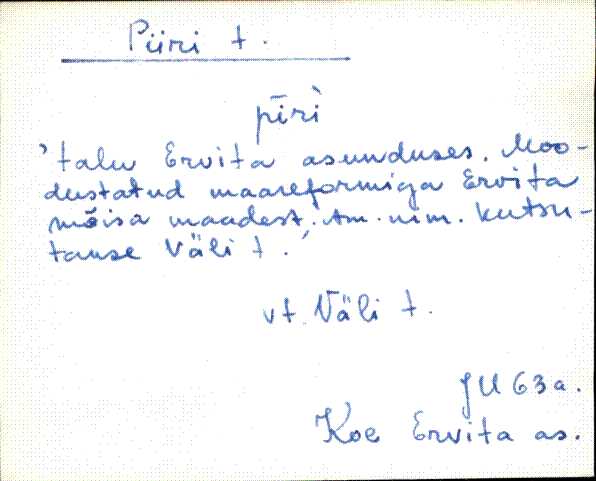 Piiri t.
pīri`
'talu Ervita asunduses. Moo-
dustatud maareformiga Ervita
mõisa maadest. Am. nim. kutsu-
takse Väli t.'
vt. Väli t.
JU 63a.
Koe Ervita as.